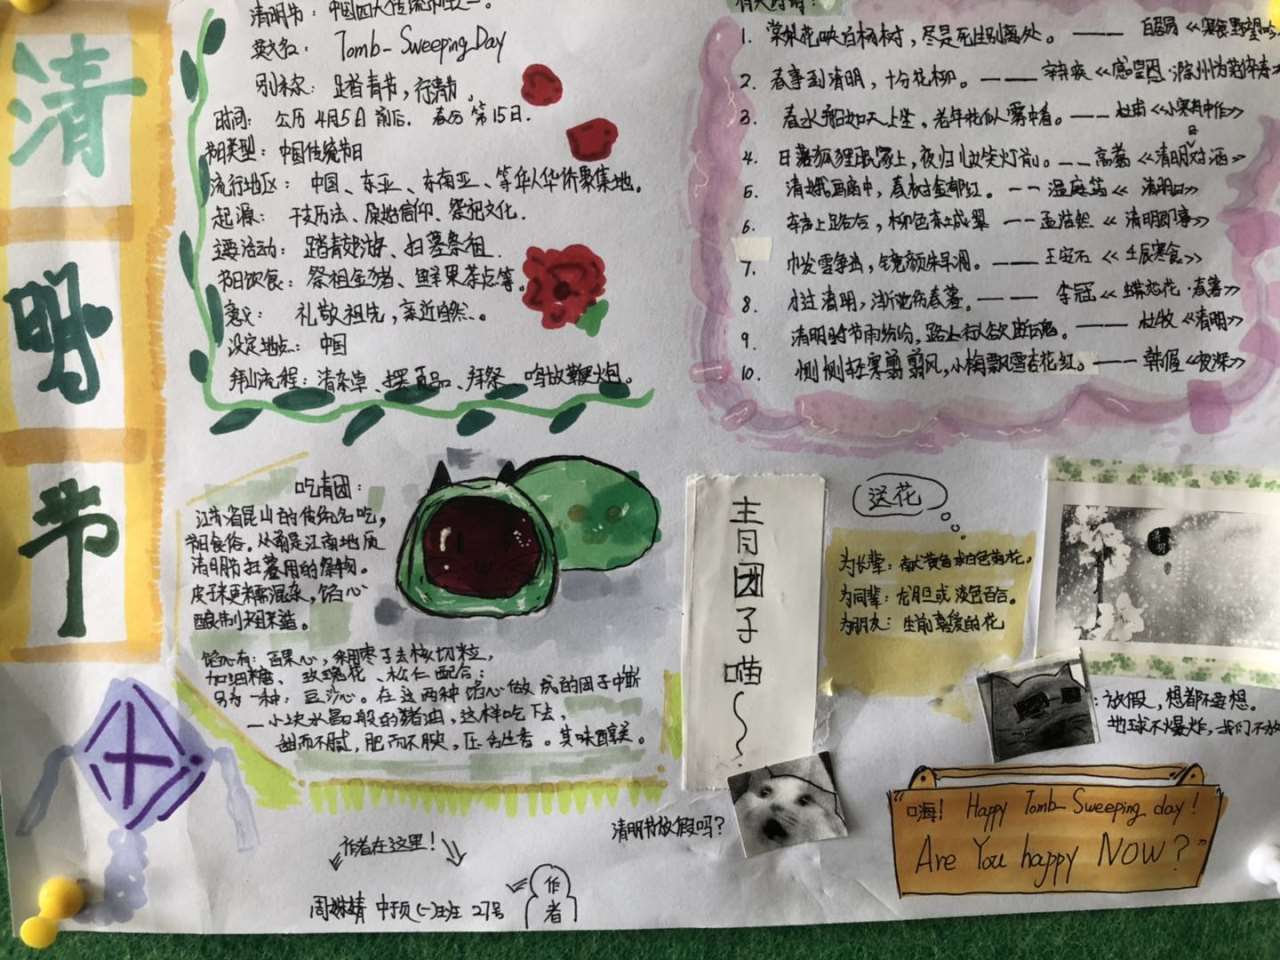 清
明
节
清明节：中国四大传统节日之一。
英文名： Tomb-Sweeping Day
别称： 踏青节，行清节。
时间： 公历4月5日前后。 春分第15日.
节日类型：中国传统节日
流行地区： 中国、东亚、东南亚、等华人华侨聚集地。
起源： 干支历法、原始信仰、祭祀文化.
主要活动： 踏青郊游、扫墓祭祖.
节日饮食： 祭祖金猪、鲜果茶点等。
意义： 礼敬祖先，亲近自然。
设定地点： 中国
拜山流程：清杂草、摆贡品、拜祭 鸣放鞭火炮。
1. 棠梨花映白杨树，尽是死生别离处。 —— 白居易《寒食野望吟
2. 春事到清明，十分花柳。 —— 辛弃疾《感皇恩·滁州为范倅寿
3. 春水船如天上坐，老年花似雾中看。 —— 杜甫《小寒食舟中作》
4. 日落狐狸眠冢上，夜归儿女笑灯前。 —— 高翥《清明日对酒
5. 清娥画扇中，春树金郁红。 —— 温庭筠《 清明日》
6. 车声上路合，柳色东城翠 —— 孟浩然《 清明即事》
7. 巾发雪争出，镜颜朱早凋。 —— 王安石《壬辰寒食》
8. 才过清明，渐觉伤春暮。 —— 李冠《蝶恋花·春暮》
9. 清明时节雨纷纷，路上行人欲断魂。 —— 杜牧《清明》
10. 恻恻轻寒翦翦风，小梅飘雪杏花红。 —— 韩偓《夜深》
吃青团：
江苏省昆山的传统名吃，
节日食俗。从前是江南地质
清明节扫墓用的祭物。
馅心有：百果心，采用枣子去核切粒，
加油糖、玫瑰花、松仁配合；
另有一种：豆沙心。在这两种馅心做成的团子中嵌
一小块水晶般的猪油，这样吃下去，
甜而不腻，肥而不腴，
青团子喵～
送花
为长辈：献黄色或白色菊花。
为同辈：龙胆或淡色百合。
为朋友：生前喜爱的花
清明节放假吗？
：放假，想都不要想。
地球不爆炸，我们不放
嗨！ Happy Tomb-Sweeping day!
Are You happy Now?
作者在这里！
作者
中预(一)班 27号